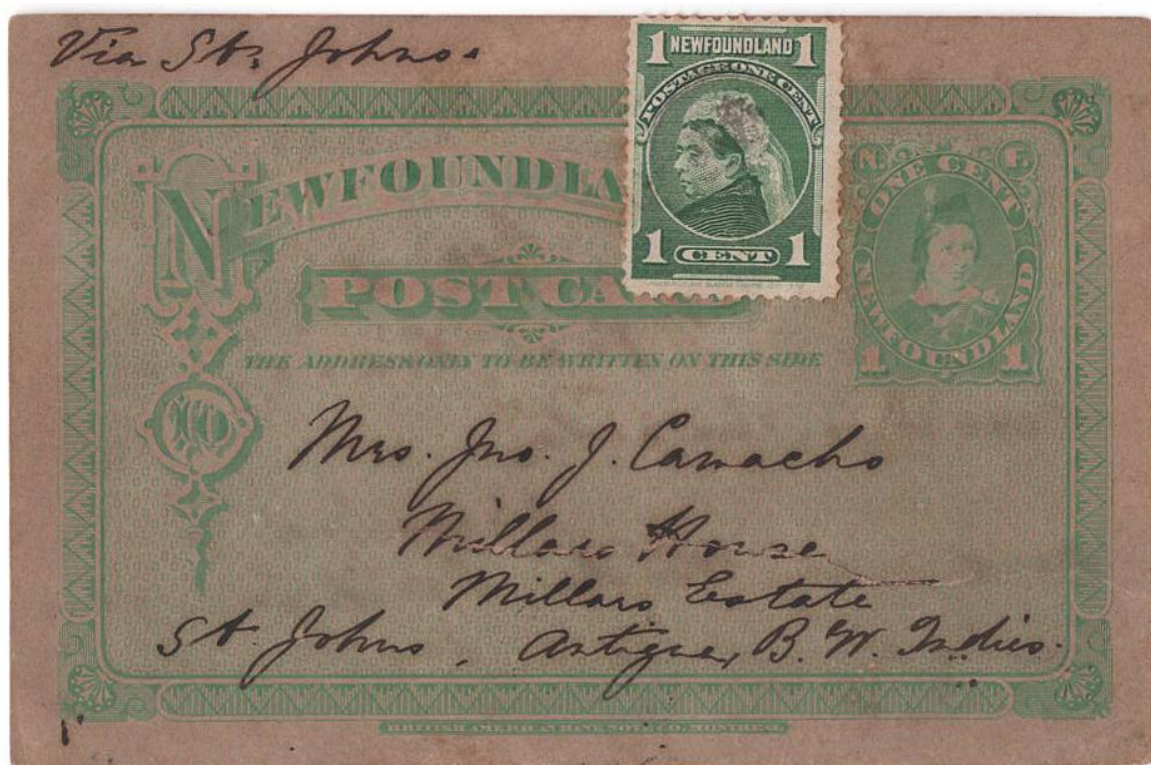 Via St. Johns.
1 NEWFOUNDLAND 1
POSTAGE ONE CENT
1 CENT 1
NEWFOUNDLA
POST CA
N. F.
ONE CENT
NEWFOUNDLAND
1 1
THE ADDRESS ONLY TO BE WRITTEN ON THIS SIDE
TO
Mrs. Jno. J. Camacho
Millars House
Millars Estate
St. Johns, Antigua, B. W. Indies.
BRITISH AMERICAN BANK NOTE CO. MONTREAL